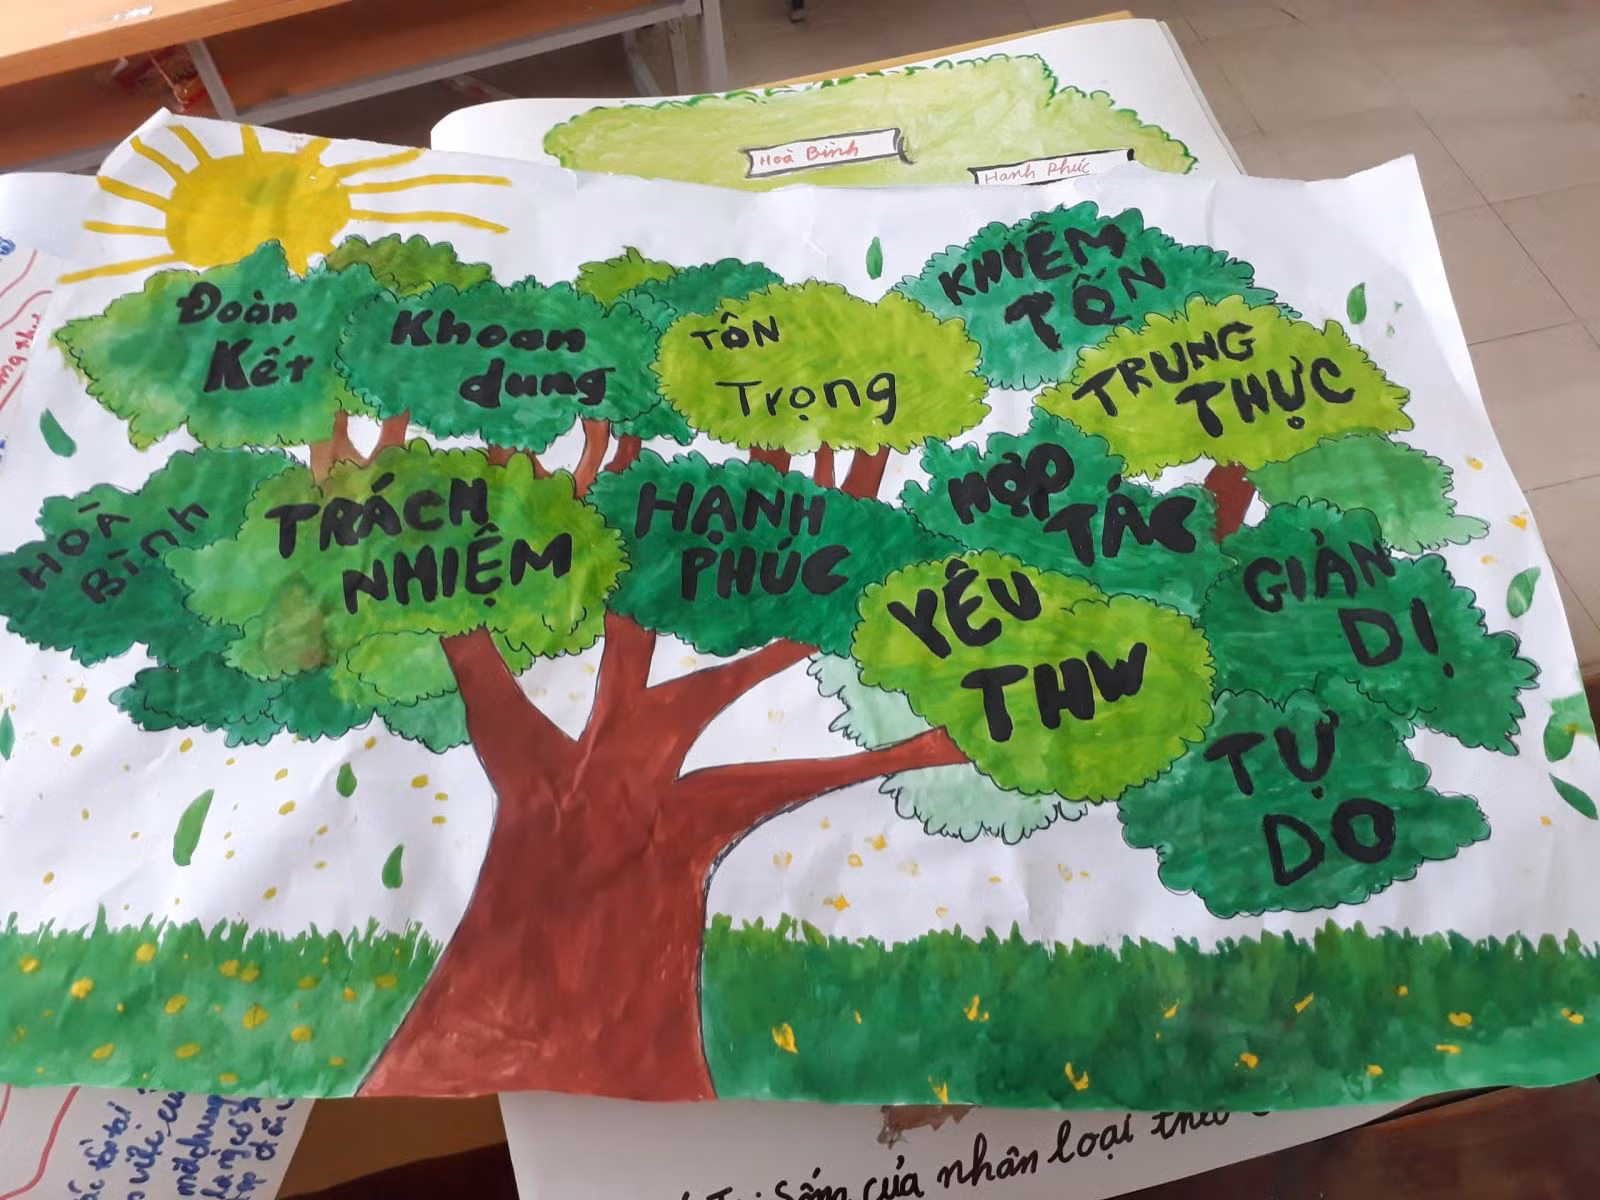 Hoà Bình
Hanh Phúc
Đoàn
Kết
Khoan
dung
TÔN
Trọng
KHIÊM
TỐN
TRUNG
THỰC
HOÀ
Bình
TRÁCH
NHIỆM
HẠNH
PHÚC
HỢP
TÁC
YÊU
THW
GIẢN
DỊ
TỰ
DO
sống của nhân loại